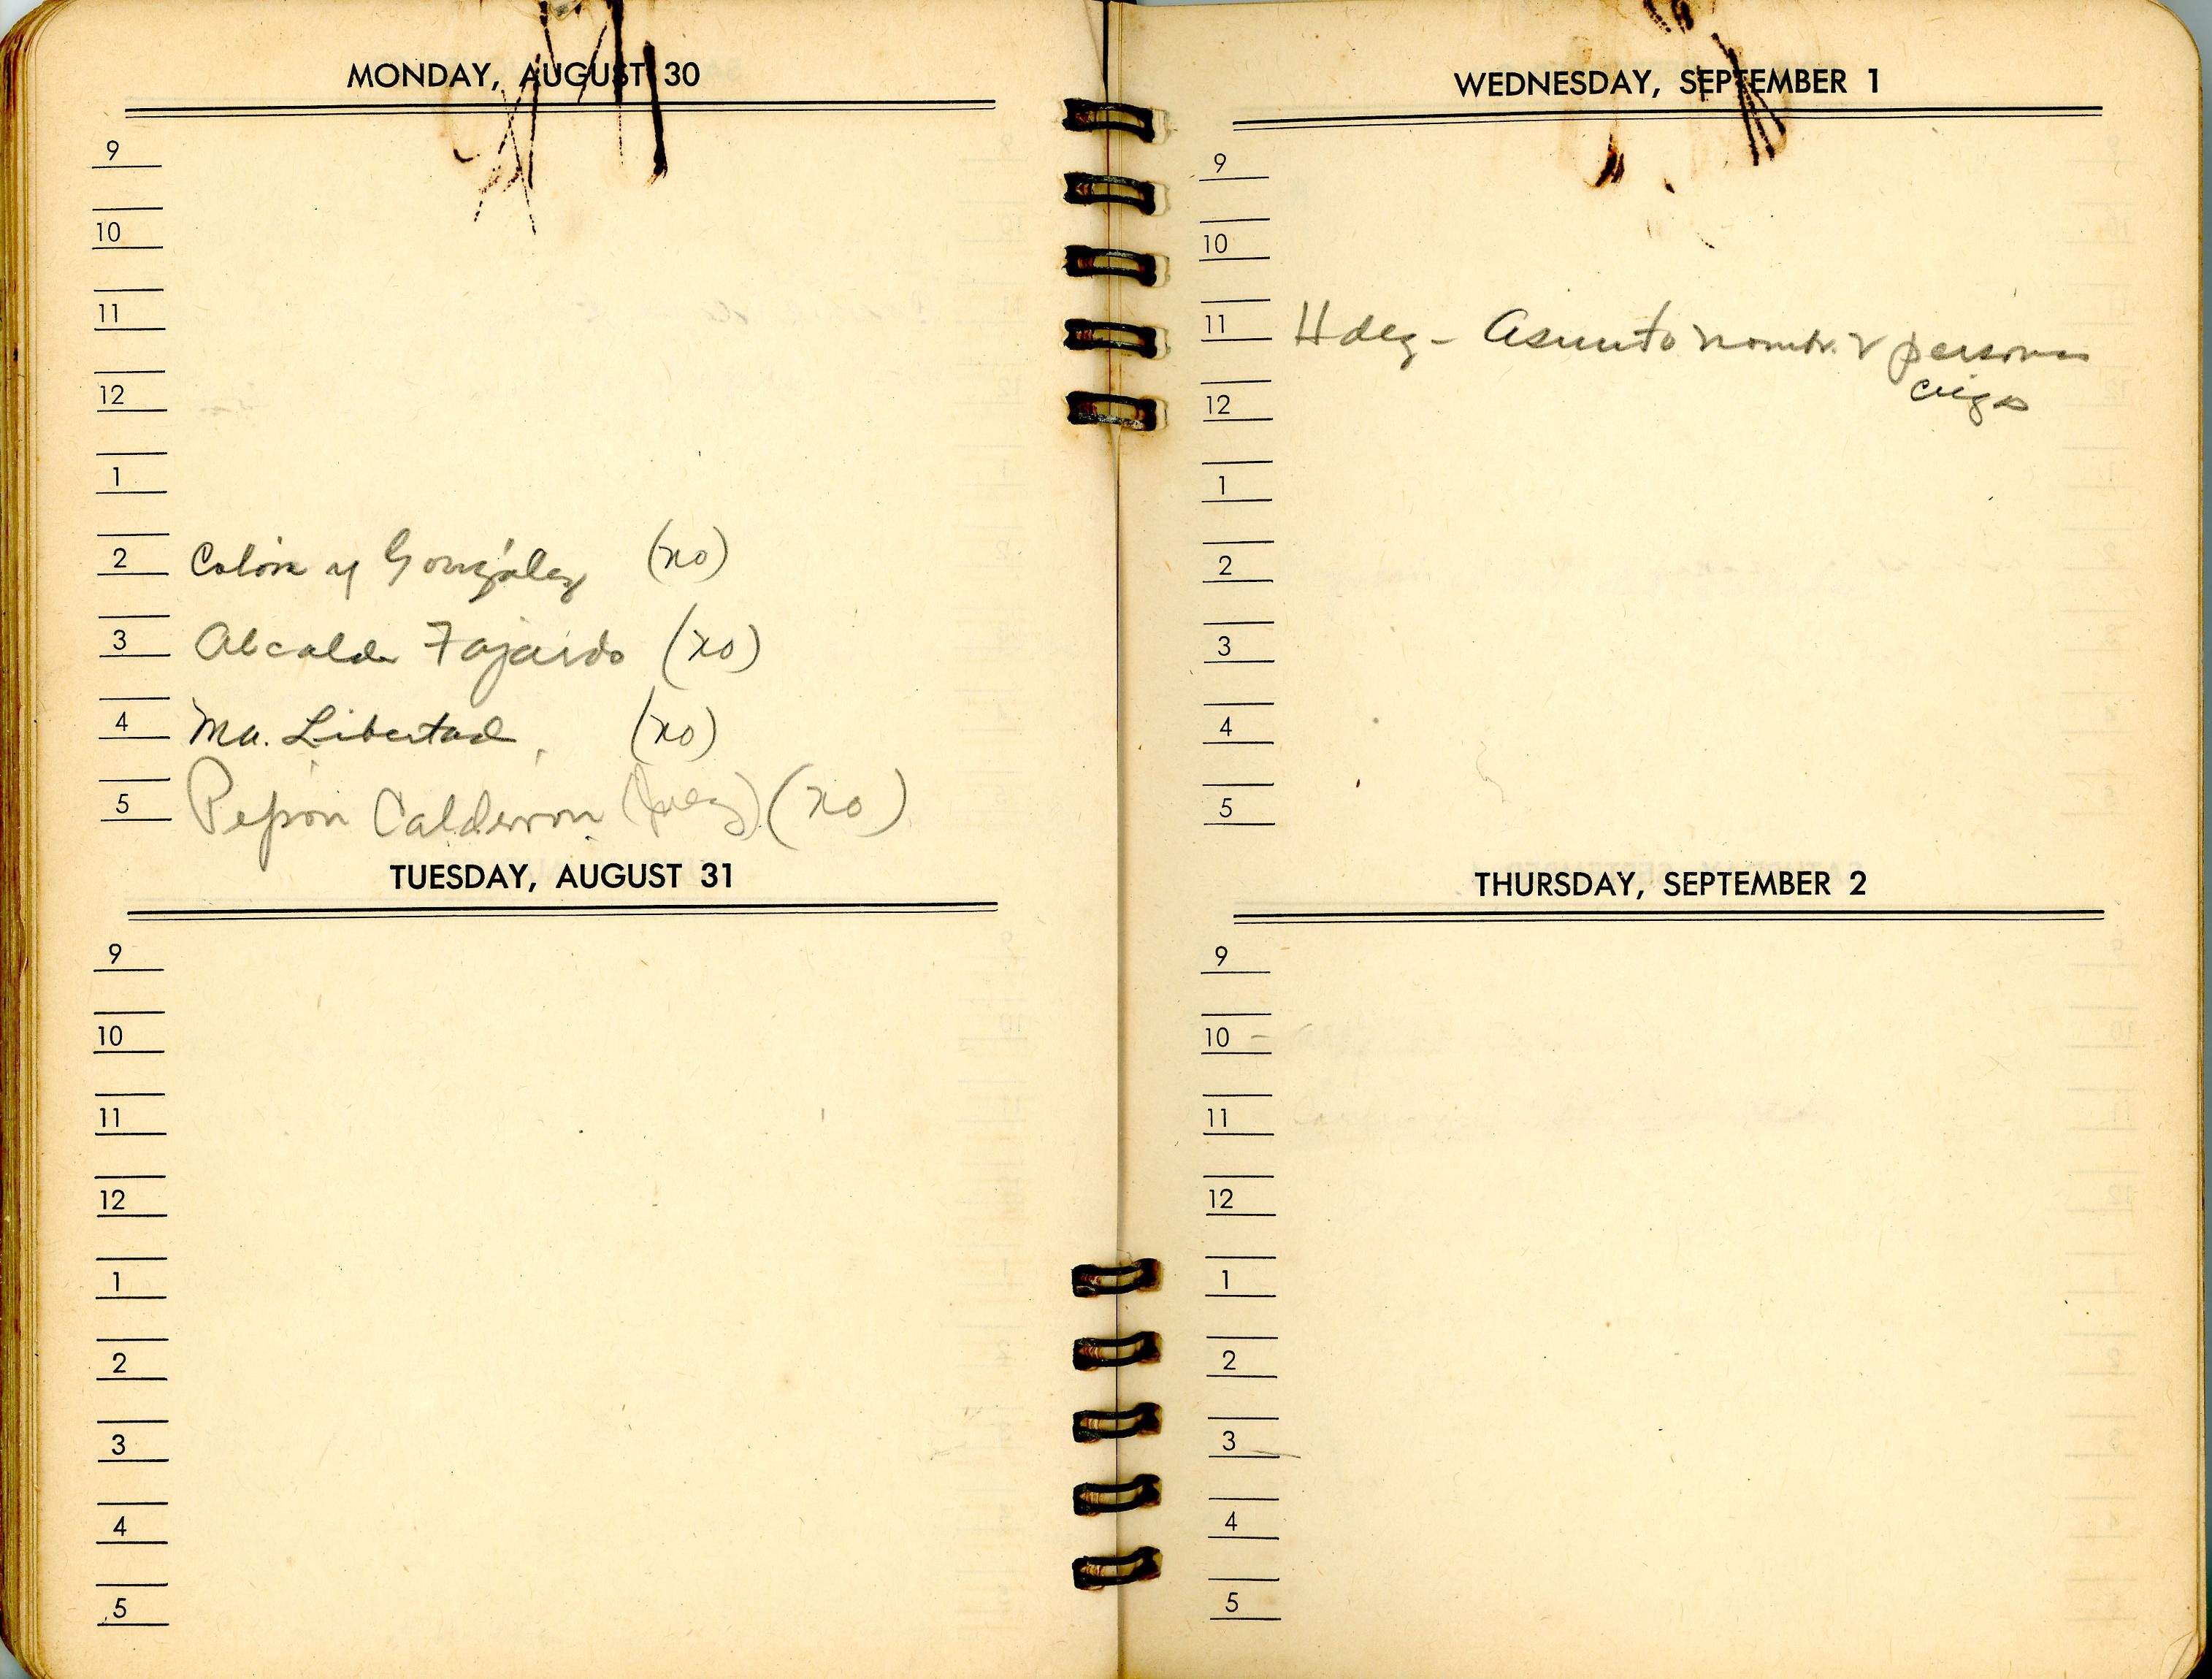 MONDAY, AUGUST 30
9
10
11
12
1
2 Colón y González (no)
3 Alcalde Fajardo (no)
4 Ma. Libertad (no)
5 Pepón Calderón (Juez) (no)
TUESDAY, AUGUST 31
9
10
11
12
1
2
3
4
5
WEDNESDAY, SEPTEMBER 1
9
10
11 Hdez - Asunto nombr. persona
ciega
12
1
2
3
4
5
THURSDAY, SEPTEMBER 2
9
10
11
12
1
2
3
4
5